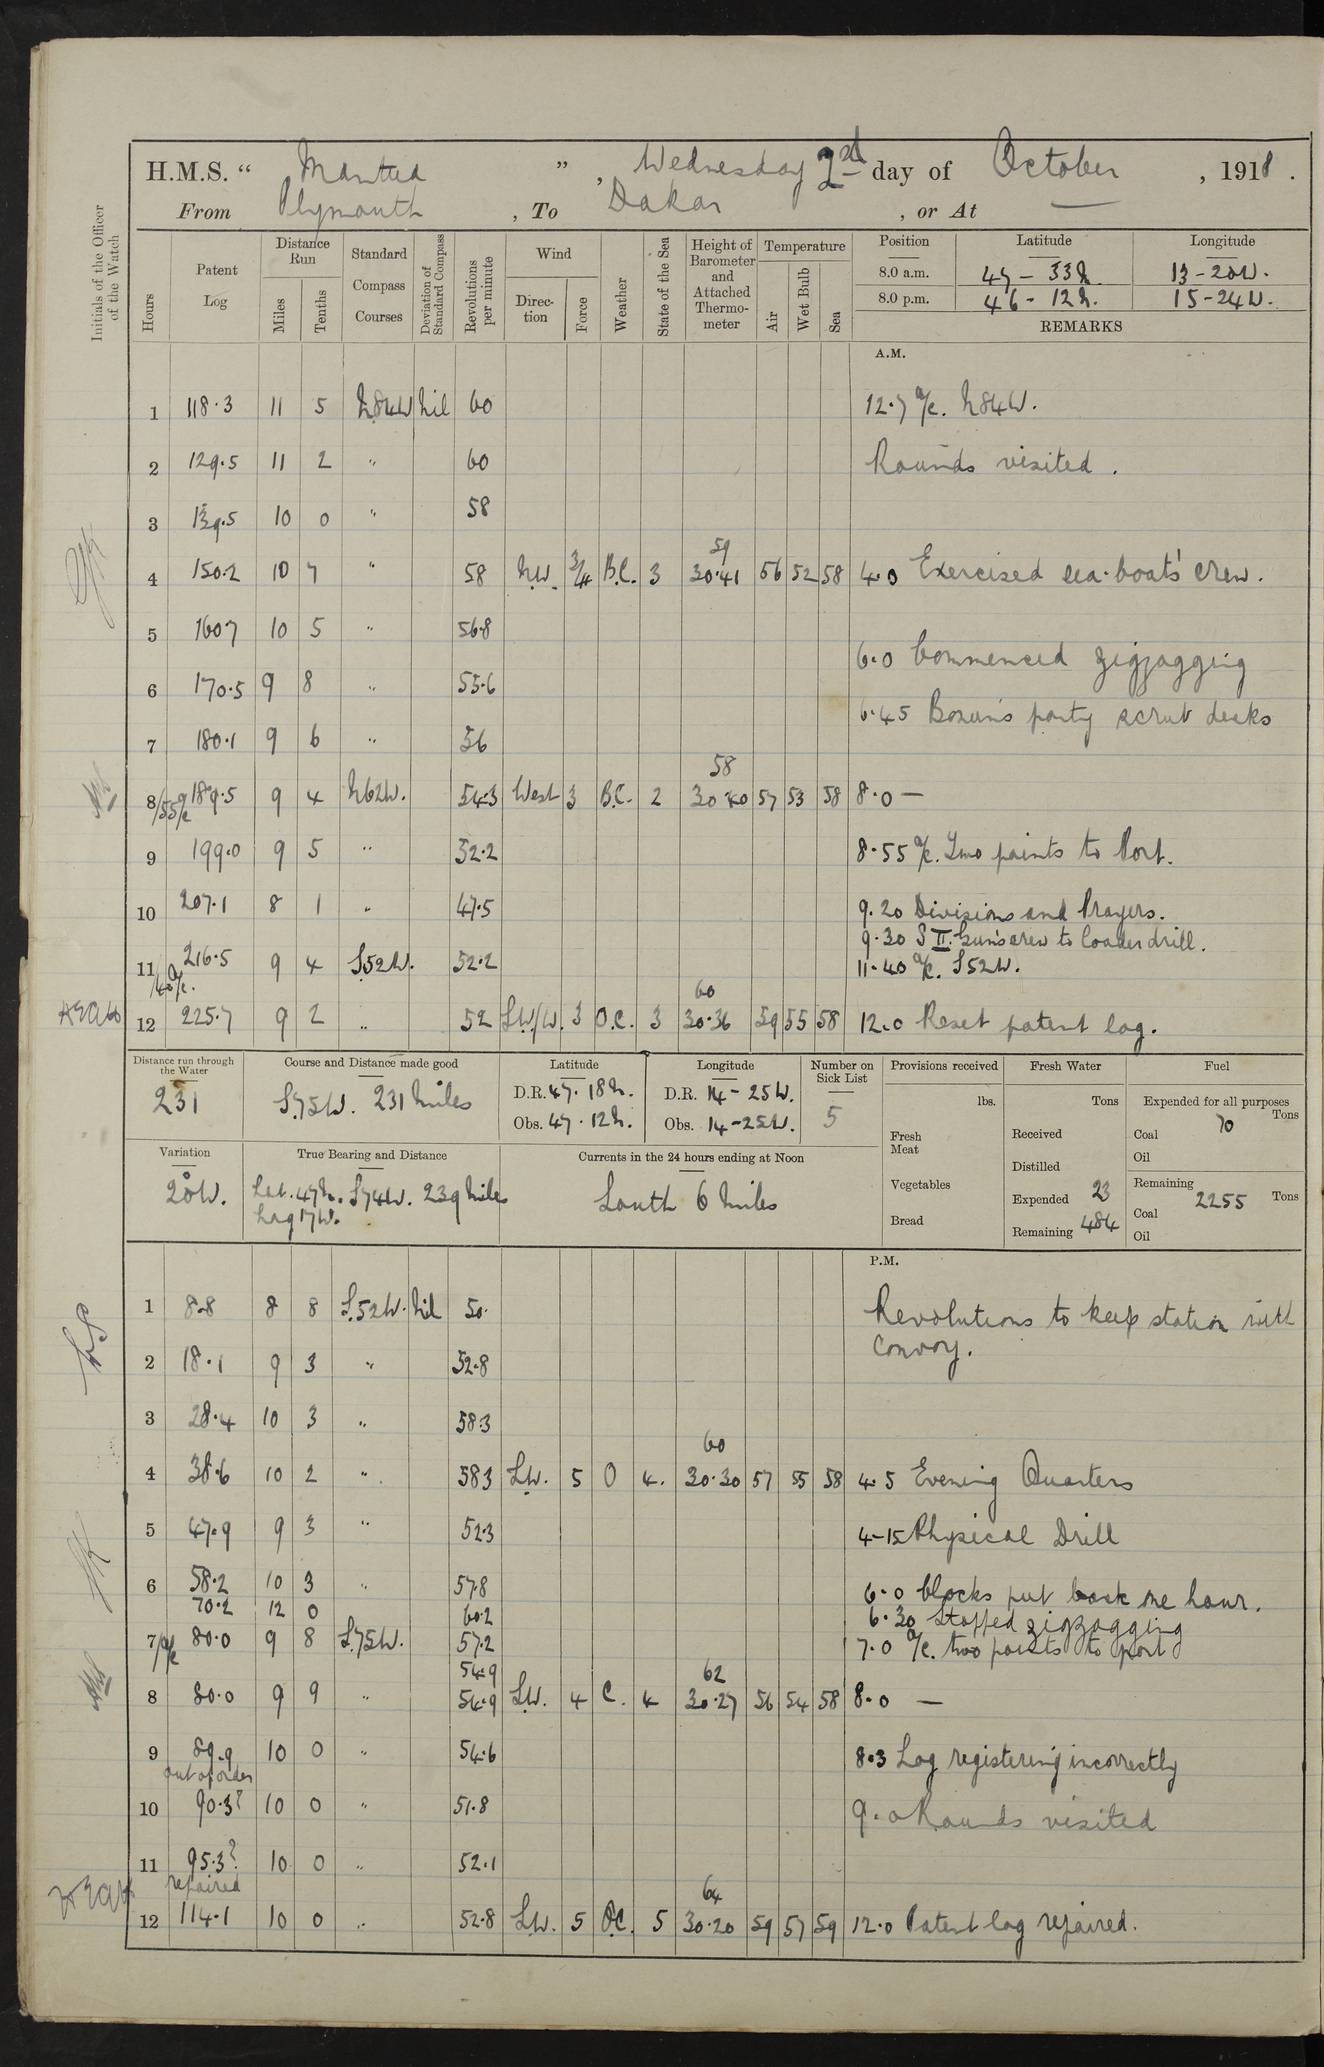 H.M.S. “ Mantua ” , Wednesday 2nd day of October , 1918 .
From Plymouth , To Dakar , or At —
Initials of the Officer of the Watch
Hours Patent Log Distance Run Miles Tenths Standard Compass Courses Deviation of Standard Compass Revolutions per minute Wind Direc-tion Force Weather State of the Sea Height of Barometer and Attached Thermo-meter Temperature Air Wet Bulb Sea Position Latitude Longitude
8.0 a.m. 47 - 33N. 13 - 20W.
8.0 p.m. 46 - 12N. 15 - 24W.
REMARKS
A.M.
1 118.3 11 5 N84W Nil 60 12.7 a/c. N84W.
2 129.5 11 2 " 60 Rounds visited .
3 139.5 10 0 " 58
59
4 150.2 10 7 " 58 NW. 3/4 B.C. 3 30.41 56 52 58 4.0 Exercised sea-boat's crew.
5 1607 10 5 " 56.8
6.0 Commenced zigzagging
6 170.5 9 8 " 55.6
6.45 Bosun's party scrub decks
7 180.1 9 6 " 56
58
8/55 a/c 189.5 9 4 N62W. 54.3 West 3 B.C. 2 30.40 57 53 58 8.0 —
9 199.0 9 5 " 52.2 8.55 a/c. Two points to Port.
10 207.1 8 1 " 47.5 9.20 Divisions and Prayers.
9.30 S II. Gun's crew to loader drill.
11/40 a/c. 216.5 9 4 S52W. 52.2 11.40 a/c. S52W.
60
12 225.7 9 2 " 52 SW/W. 3 O.C. 3 30.36 59 55 58 12.0 Reset patent log.
Distance run through the Water Course and Distance made good Latitude Longitude Number on Sick List Provisions received Fresh Water Fuel
231 S75W. 231 Miles D.R. 47. 18N. D.R. 14 - 25W. 5 lbs. Tons Expended for all purposes Tons
Obs. 47. 12N. Obs. 14 - 25W. Fresh Meat Received Coal 70
Oil
Variation True Bearing and Distance Currents in the 24 hours ending at Noon Distilled Remaining Tons
20W. Lat. 47N. S74W. 239 Miles South 6 Miles Vegetables Expended 23 Coal 2255
Log 17W. Bread Remaining 484 Oil
P.M.
1 8.8 8 8 S.52W. Nil 50. Revolutions to keep station with
convoy.
2 18.1 9 3 " 52.8
3 28.4 10 3 " 58.3
60
4 38.6 10 2 " 583 SW. 5 O 4. 30.30 57 55 58 4.5 Evening Quarters
5 47.9 9 3 " 52.3 4-15 Physical Drill
6 58.2 10 3 " 57.8 6.0 Clocks put back one hour.
70.2 12 0 60.2 6.30 Stopped zigzagging
7/a/c 80.0 9 8 S.75W. 57.2 7.0 a/c. two points to port
54.9 62
8 80.0 9 9 " 54.9 SW. 4 C. 4 30.27 56 54 58 8.0 —
9 89.9 10 0 " 54.6 8.3 Log registering incorrectly
out of order
10 90.3? 10 0 " 51.8 9.0 Rounds visited
11 95.3? 10 0 " 52.1
repaired 64
12 114.1 10 0 " 52.8 SW. 5 OC. 5 30.20 59 57 59 12.0 Patent log repaired.